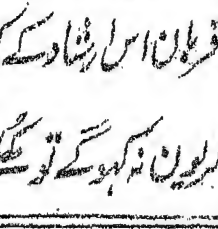 قربان اس ارشاد کے
یون نہ کہو گے تو